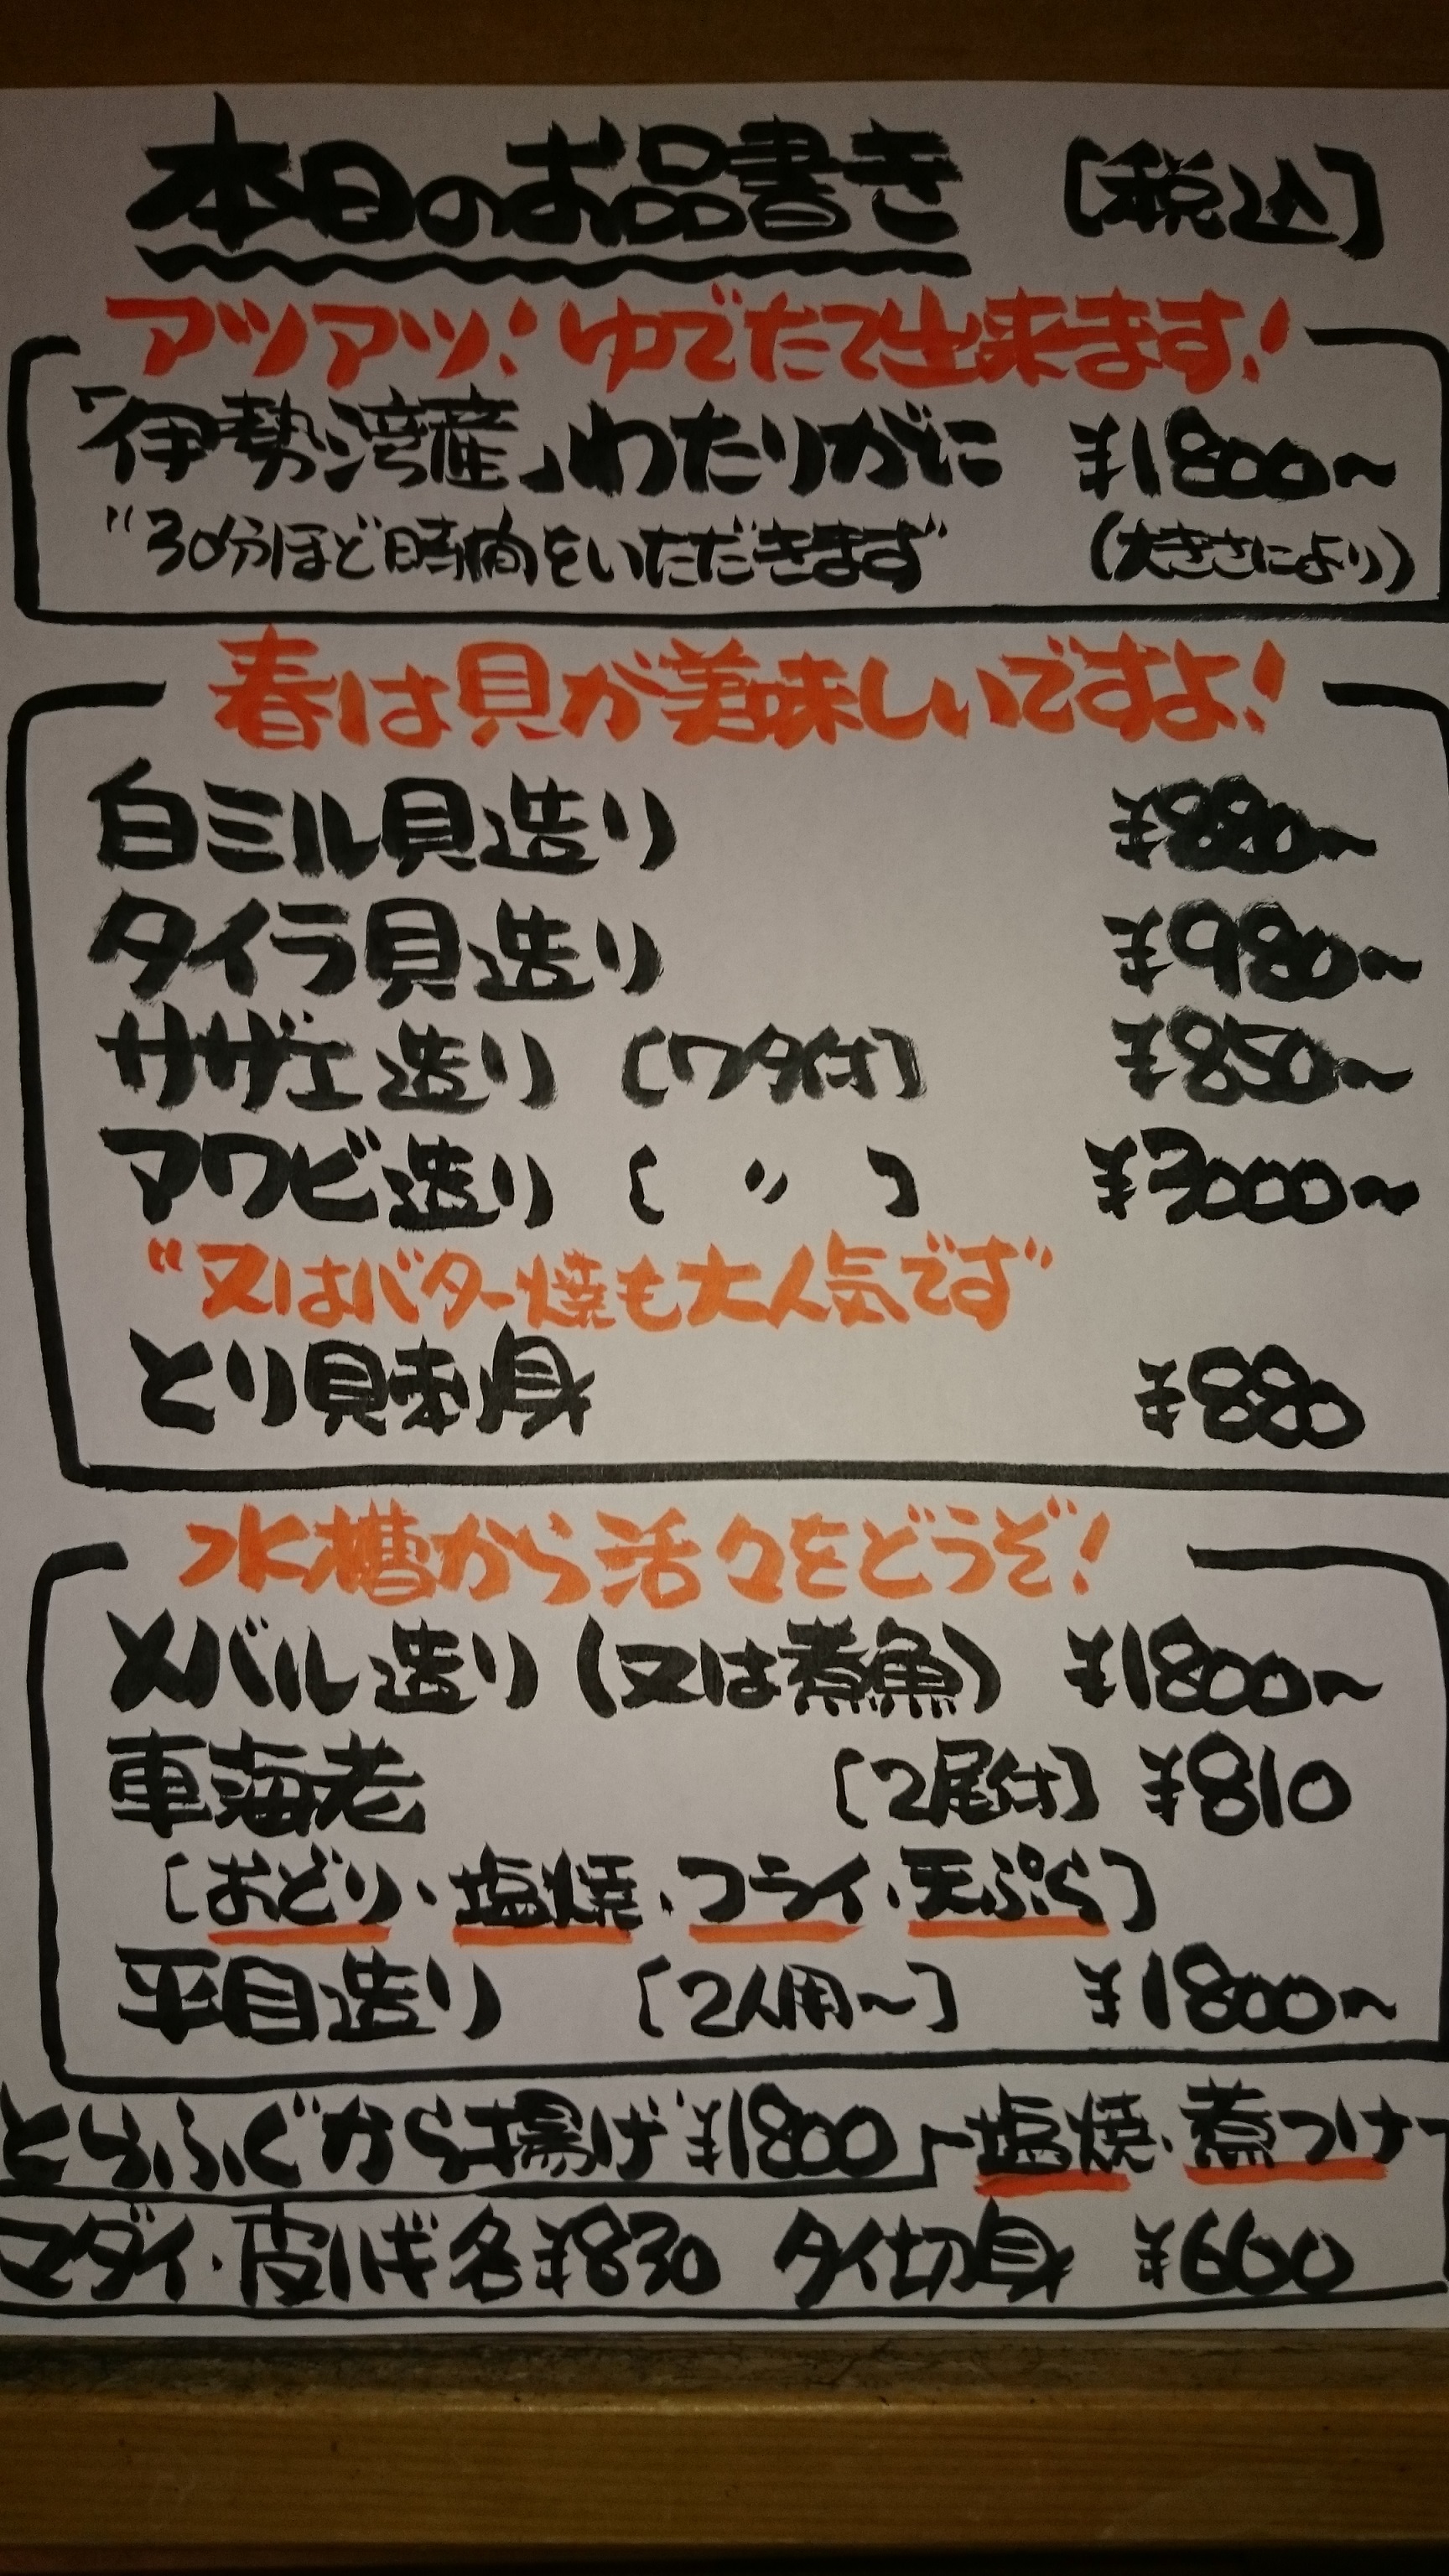 本日のお品書き [税込]
アツアツ!ゆでたて出来ます!
「伊勢湾産」わたりがに ¥1800~
"30分ほど時間をいただきます" (大きさにより)
春は貝が美味しいですよ!
白ミル貝造り ¥880~
タイラ貝造り ¥980~
サザエ造り [ワタ付] ¥850~
アワビ造り [ 〃 ] ¥3000~
"又はバター焼も大人気です"
とり貝刺身 ¥880
水槽から活々をどうぞ!
メバル造り (又は煮魚) ¥1800~
車海老 [2尾付] ¥810
[おどり・塩焼・フライ・天ぷら]
平目造り [2人用~] ¥1800~
とらふぐから揚げ ¥1800 塩焼・煮つけ
マダイ・皮はぎ 各¥830 タイ切身 ¥600